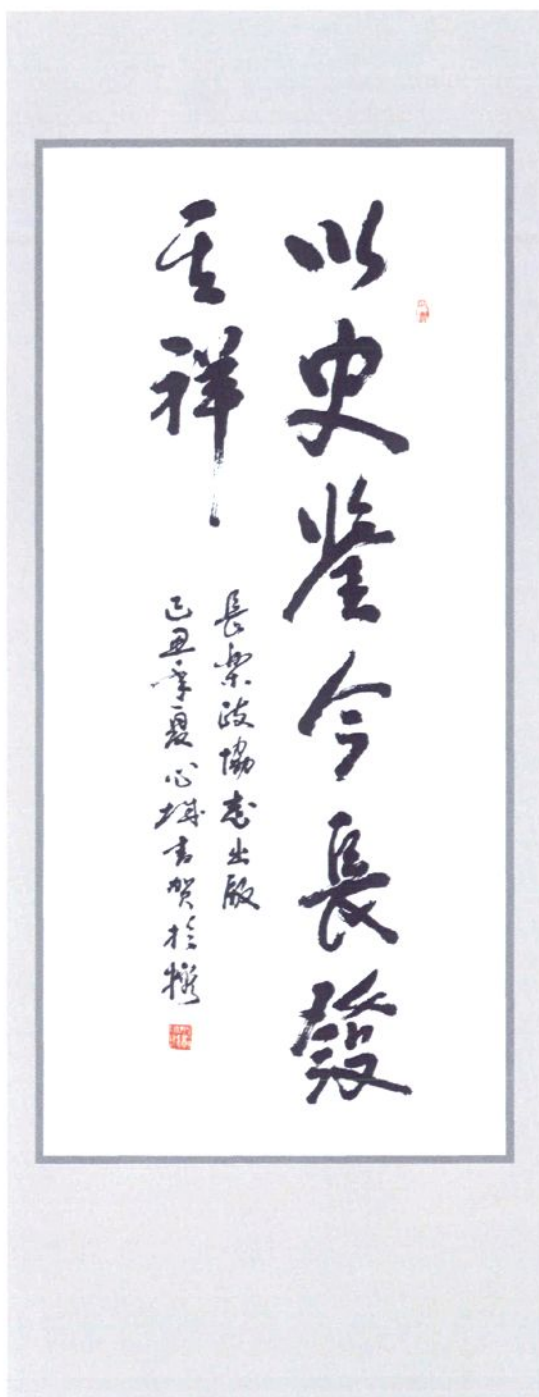 以史鉴今長發
其祥
長樂政協志出版
己丑年夏心城書賀於榕